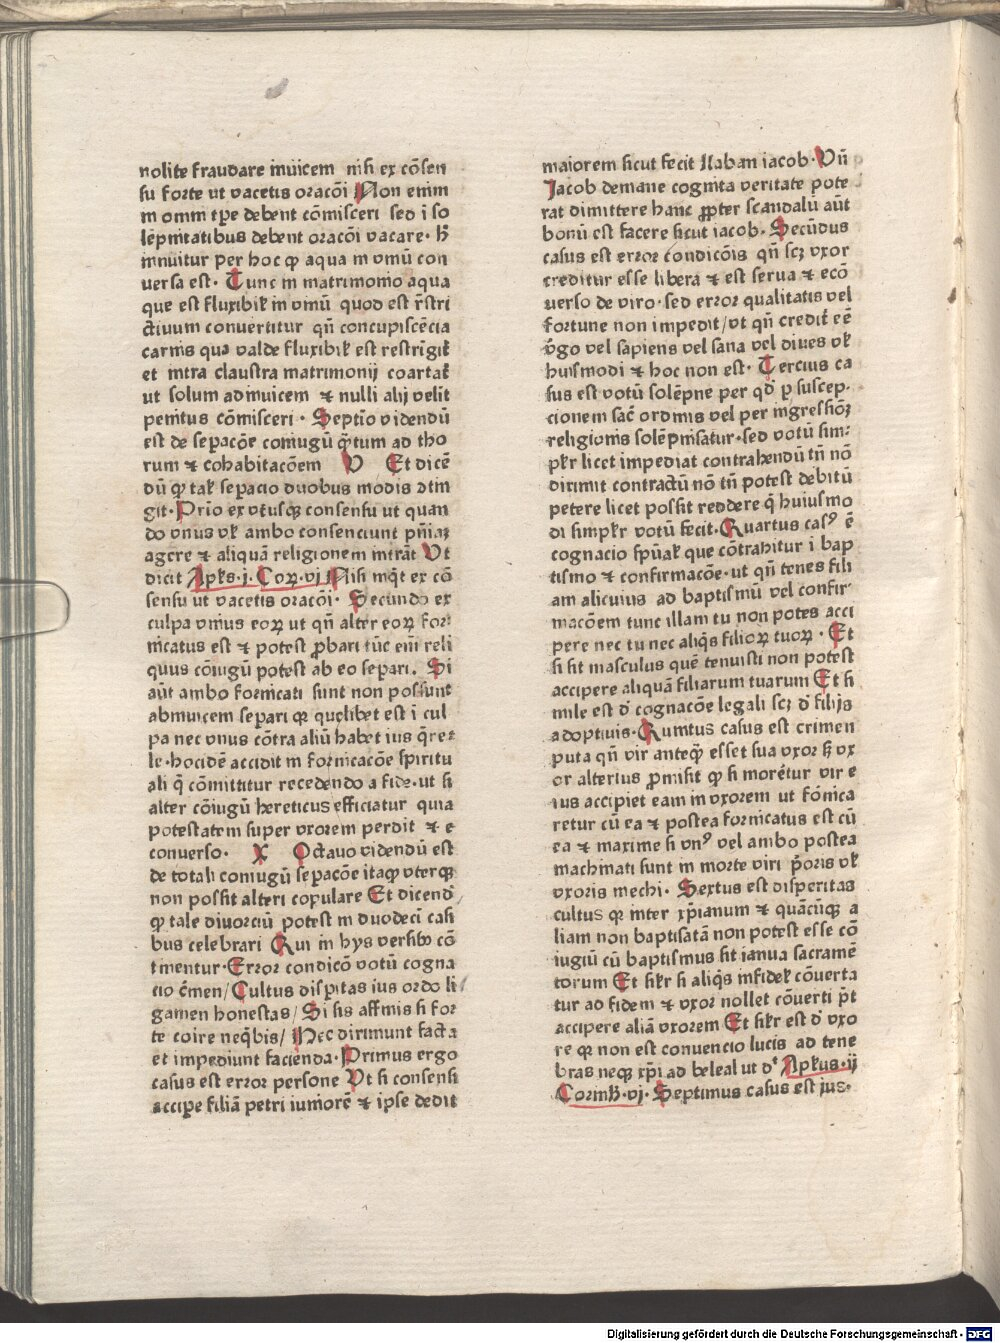 nolite fraudare inuicem nisi ex cõsen
su forte ut vacetis oracõi Non enim
in omni tp̃e debent cõmisceri sed ĩ so
lẽpnitatibus debent oracõi vacare· h̃
innuitur per hoc ꝙ aqua in vinũ con
uersa est· Tunc in matrimonio aqua
que est fluxibiľ in vinũ quod est r̃stri
ctiuum conuertitur qñ concupiscẽcia
carnis qua valde fluxibiľ est restrĩgit̃
et intra claustra matrimonij coartat̃
ut solum adinuicem ⁊ nulli alij velit
penitus cõmisceri · Septĩo videndũ
est de sepacõe coniugũ q̃tum ad tho
rum ⁊ cohabitacõem V Et dicẽ
dũ ꝙ taľ sepacio duobus modis ↄtin
git· Prĩo ex vtusqꝫ consensu ut quan
do vnus vľ ambo consenciunt pñiaꝫ
agere ⁊ aliquã religionem intrãt Vt
dicit Apľs·j· Coꝝ·vij Nisi inq̃t ex cõ
sensu ut vacetis oracõi· Secundo ex
culpa vnius eoꝝ ut qñ alter eoꝝ for
nicatus est ⁊ potest ꝓbari tũc eni reli
quus cõiugũ potest ab eo separi. Si
aũt ambo fornicati sunt non possunt
abinuicem separi qꝛ quclibet est ĩ cul
pa nec vnus cõtra aliũ habet ius q̃re-
le·hocidẽ accidit in fornicacõe spiritu
ali q̃ cõmittitur recedendo a fide·ut si
alter cõiugũ hereticus efficiatur quia
potestatem super vxorem perdit ⁊ e
conuerso· X Octauo videndũ est
de totali coniugũ sepacõe itaqꝫ vterqꝫ
non possit alteri copulare Et dicend̃
ꝙ tale diuorciũ potest in duodeci casi
bus celebrari Qui in hys versibꝫ cõ
tinentur·Error condicõ votũ cogna
cio c̃men/Cultus disp̃itas ius ordo li
gamen honestas/Si sis affinis si for
te coire neq̃bis/Nec dirimunt facta
et impediunt facienda·Primus ergo
casus est error persone Vt si consensi
accipe filiã petri iuniorẽ ⁊ ipse dedit
maiorem sicut fecit Laban iacob·Vñ
Jacob demane cognita veritate pote
rat dimittere hanc ꝓpter scandalũ aũt
bonũ est facere sicut iacob· Secũdus
casus est error condicõis qñ scꝫ vxor
creditur esse libera ⁊ est serua ⁊ ecõ
uerso de viro·sed error qualitatis vel
fortune non impedit/vt qñ credit̃ eẽ
v̾go vel sapiens vel sana vel diues vľ
huismodi ⁊ hoc non est· Tercius ca
sus est votũ solẽpne per qd̃ ꝑ suscep-
cionem sac̃ ordinis vel per ingressiõꝫ
religionis solẽpnisatur·sed votũ sim-
pľr licet impediat contrahendũ tñ nõ
dirimit contractũ nõ tñ potest debitũ
petere licet possit reddere q̃ huiusmo
di simpľr votũ fecit·Quartus casꝰ ẽ
cognacio spũaľ que cõtrahitur ĩ bap
tismo ⁊ confirmacõe·ut qñ tenes fili
am alicuius ad baptismũ vel confir-
macõem tunc illam tu non potes acci
pere nec tu nec aliq̃s filioꝝ tuoꝝ · Et
si sit masculus quẽ tenuisti non potest
accipere aliquã filiarum tuarum Et si
mile est d̃ cognacõe legali scꝫ d̃ filijs
adoptiuis·Quintus casus est crimen
puta qñ vir anteqꝫ esset sua vxor sꝫ vx
or alterius ꝓmisit ꝙ si morẽtur vir e
ius accipiet eam in vxorem ut fõnica
retur cũ ea ⁊ postea fornicatus est cũ
ea ⁊ maxime si vnꝰ vel ambo postea
machinati sunt in morte viri p̃oris vľ
vxoris mechi· Sextus est disperitas
cultus qꝛ inter xp̃ianum ⁊ quãcũqꝫ a
liam non baptisatã non potest esse cõ
iugiũ cũ baptismus sit ianua sacramẽ
torum Et siľr si aliq̃s infideľ cõuerta
tur ad fidem ⁊ vxor nollet cõuerti p̃t
accipere aliã vxorem Et siľr est d̃ vxo
re qꝛ non est conuencio lucis ad tene
bras neqꝫ xp̃i ad beleal ut dt̃ Apľus·ij
Corinth̃·vj· Septimus casus est jus·
Digitalisierung gefördert durch die Deutsche Forschungsgemeinschaft - DFG